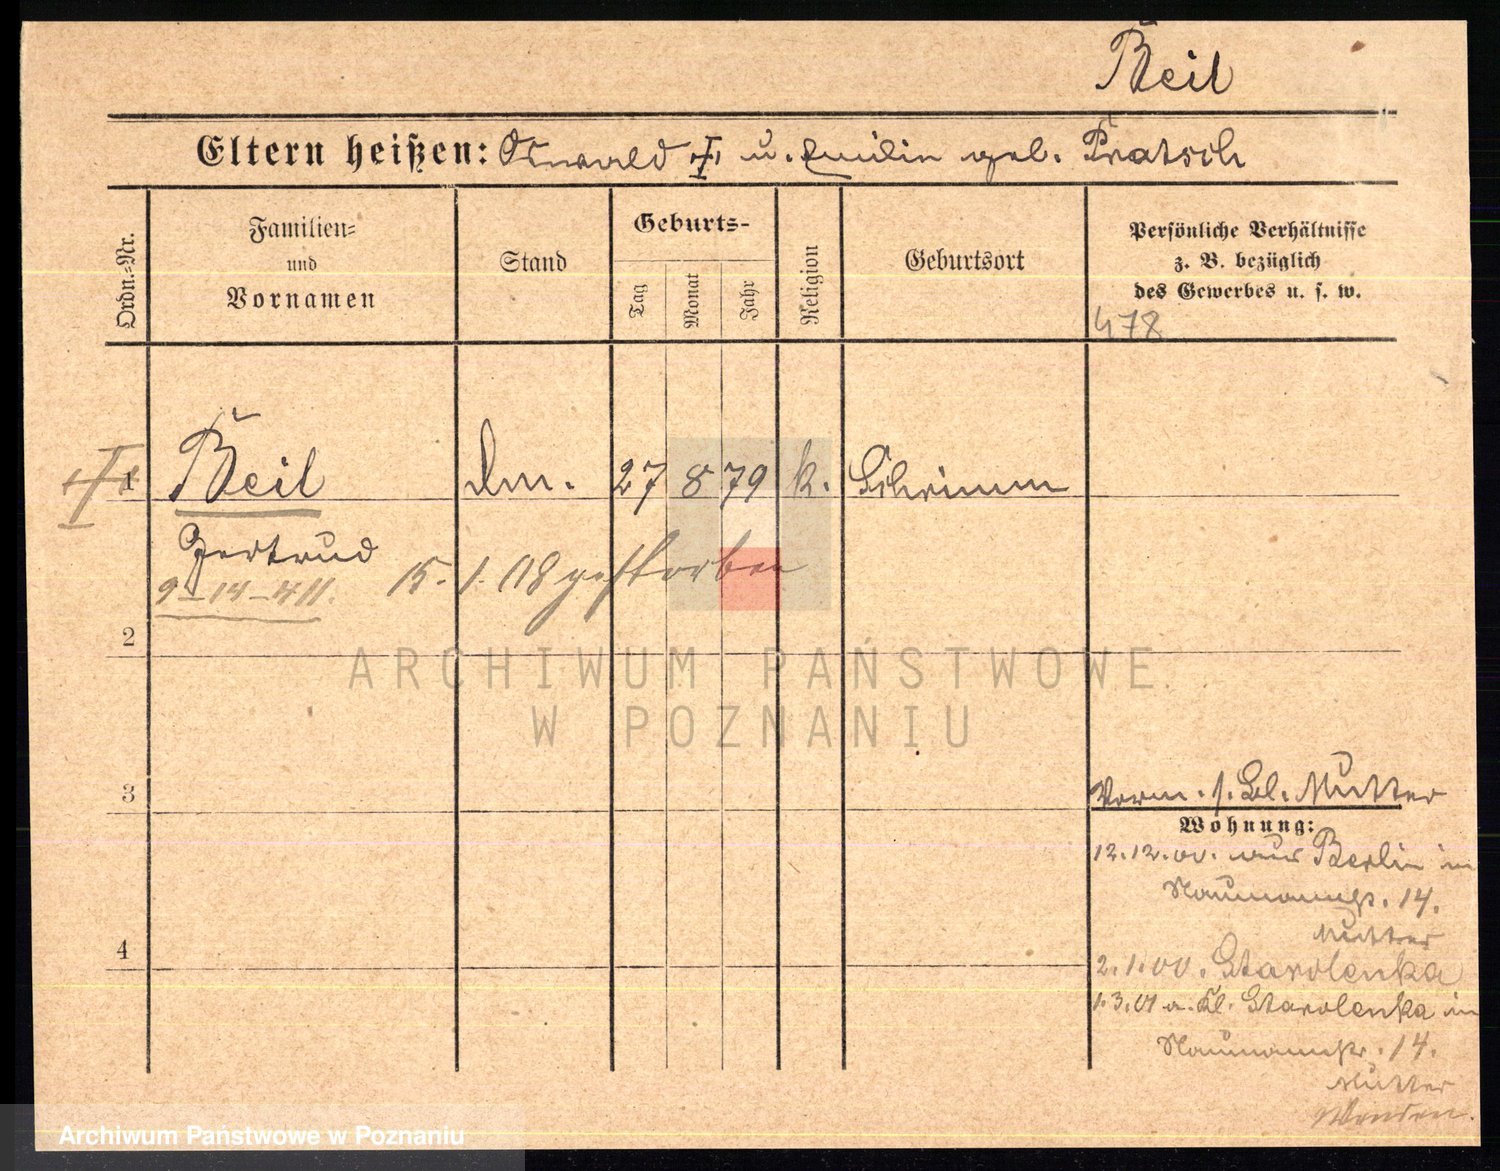 Beil
Eltern heißen: Oswald † u. Emilie geb. Pratsch
Ordn.-Nr.
Familien-
und
Vornamen
Stand
Geburts-
Tag
Monat
Jahr
Religion
Geburtsort
Persönliche Verhältnisse
z. B. bezüglich
des Gewerbes u. s. w.
478
† 1 Beil 27 8 79 k. Schrimm
Gertrud
15. 1. 18 gestorben
9-14-411.
2
3
4
Vorm. s. Bl. Mutter
Wohnung:
12.12.00. aus Berlin in
Naumannstr. 14.
Mutter
2.1.00. Starolenka
1.3.01 a. Kl. Starolenka in
Naumannstr. 14.
Mutter
Wenden.
ARCHIWUM PAŃSTWOWE
W POZNANIU
Archiwum Państwowe w Poznaniu